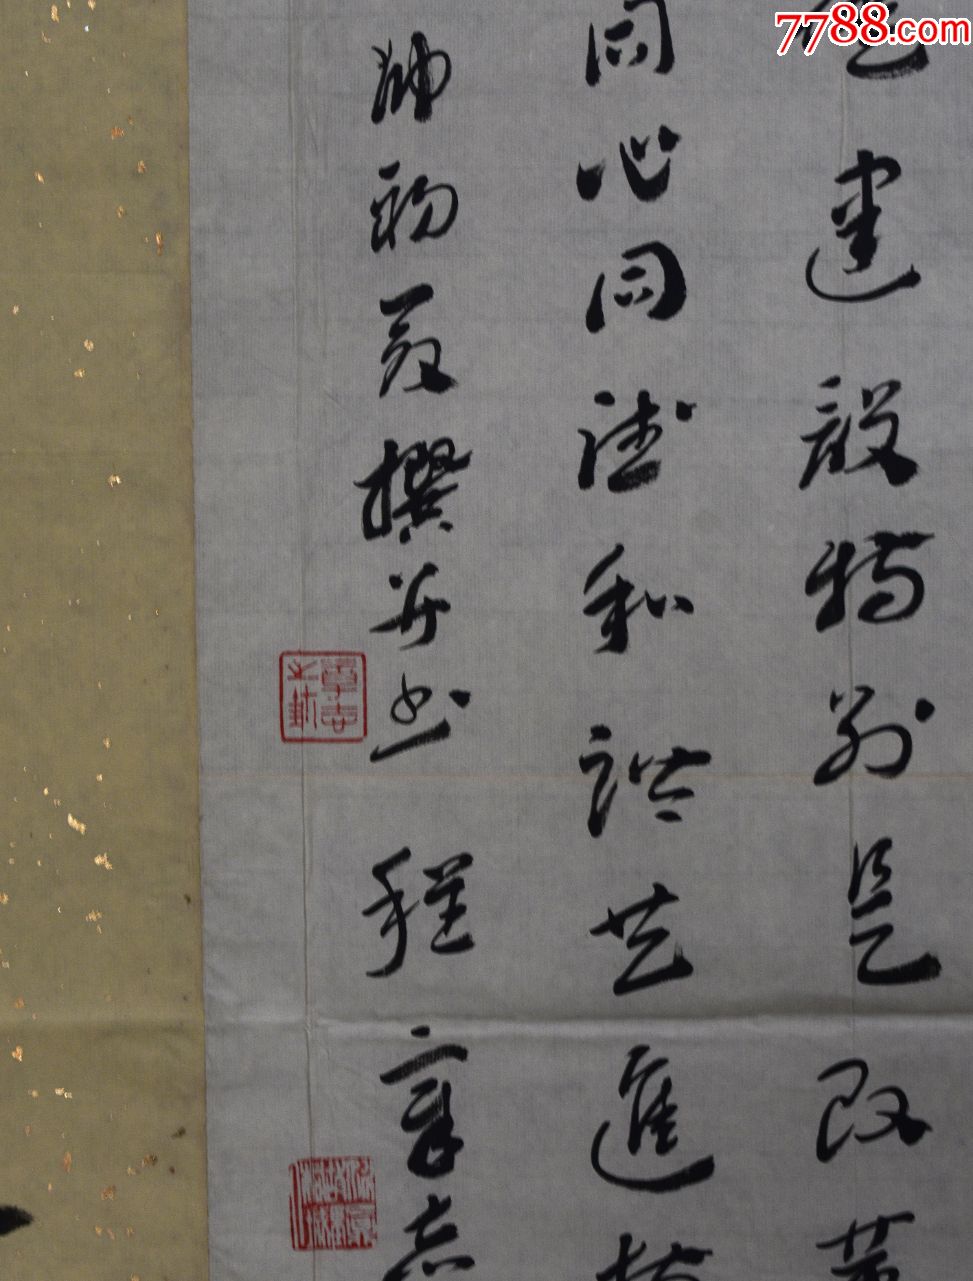 7788.com
建設特別是改革
同心同德和諧共進
初夏撰并书 程章